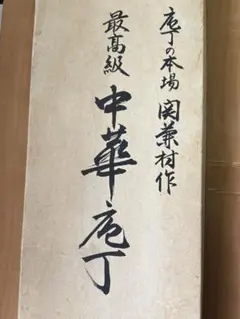 庖丁の本場 関兼村作
最高級
中華庖丁